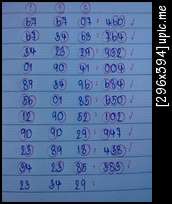 67 67 07: 460 ✓
67 34 63: 764 ✓
34 23 29: 932
01 90 41: 004 ✓
89 34 96: 694 ✓
56 01 85: 650 ✓
12 90 52: 002 ✓
90 90 29: 947 ✓
23 89 18: 438 ✓
34 23 85: 383 ✓
23 34 29:
[296x394] uplc.me